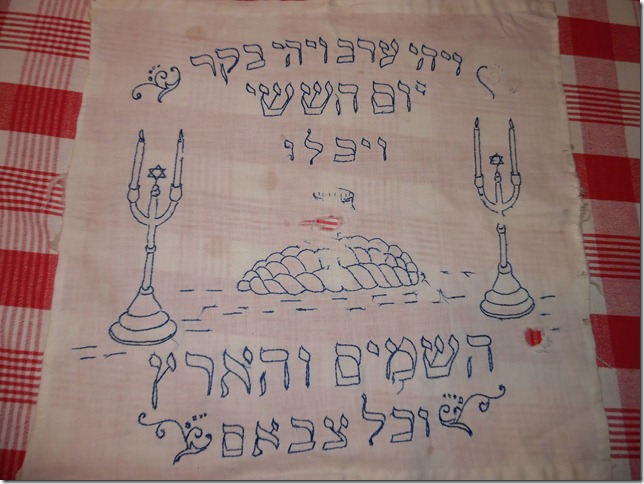 ויהי ערב ויהי בקר
יום הששי
ויכלו
השמים והארץ
וכל צבאם